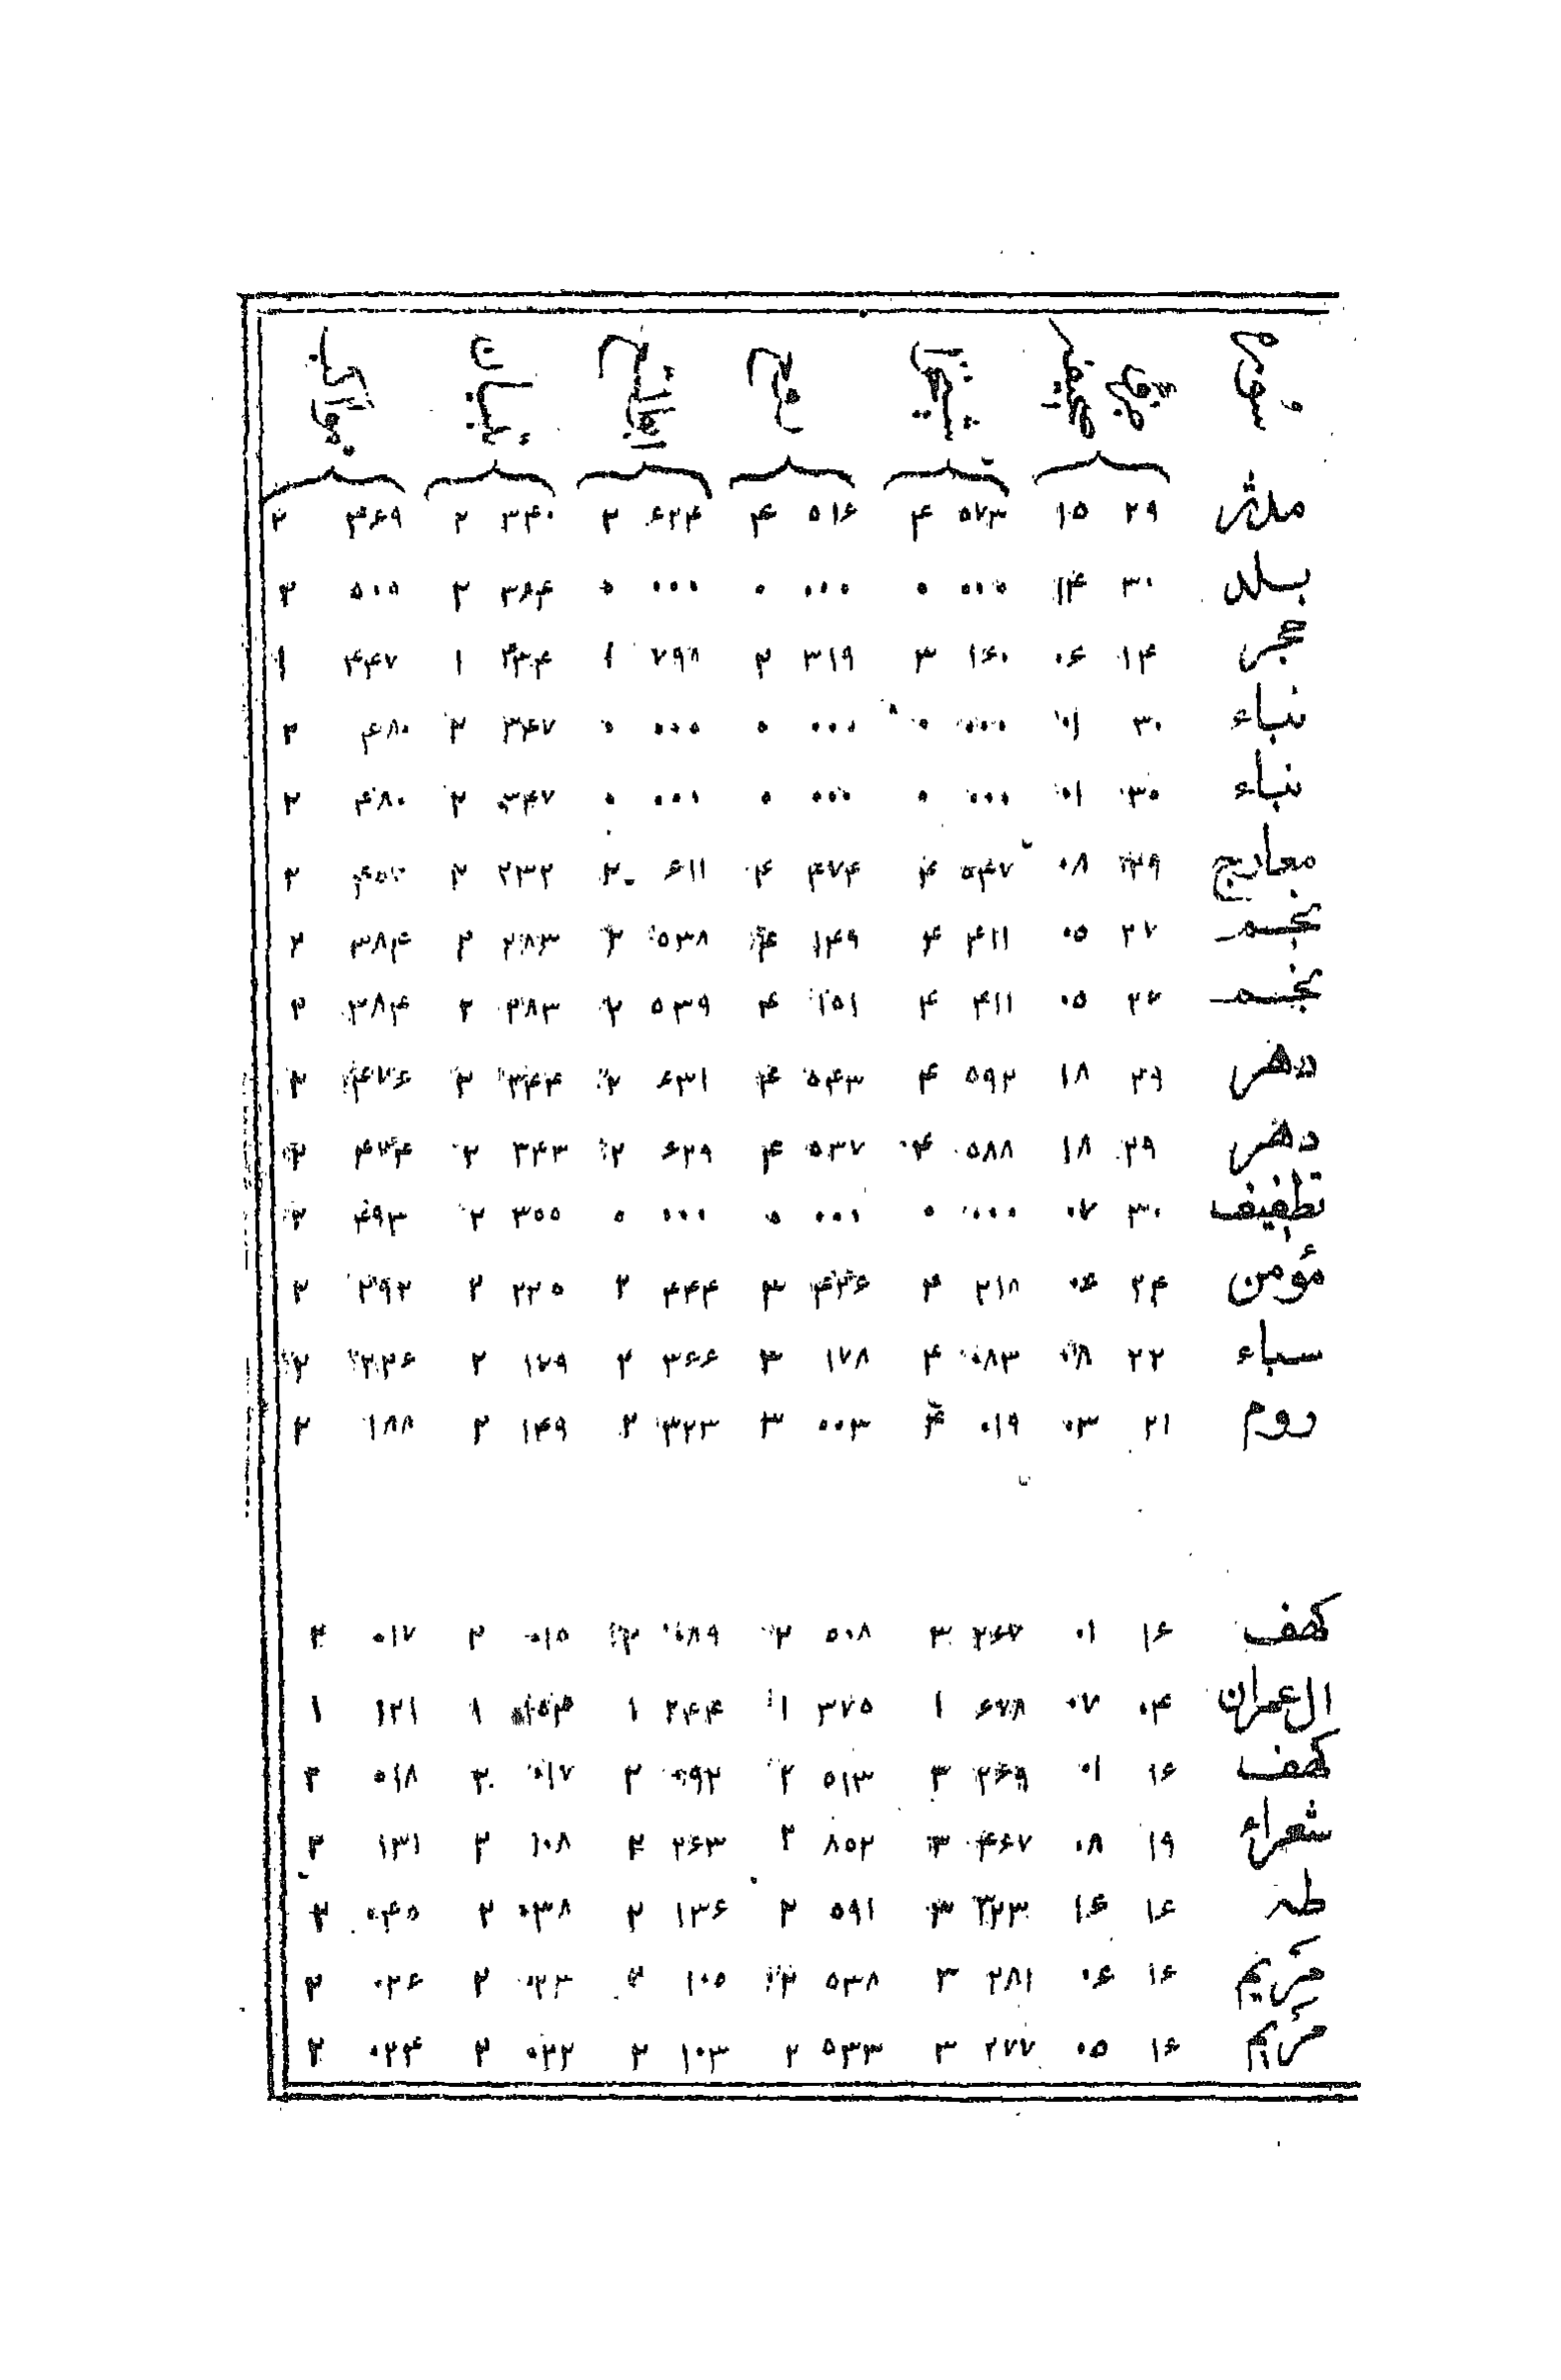 مدثر ۲۹ ۱۵ ۵۷۳ ۴ ۵۱۶ ۴ ۶۲۴ ۲ ۳۴۰ ۲ ۴۶۹ ۲
بلد ۳۰ ۱۴ ۰۰۰ ۰ ۰۰۰ ۰ ۰۰۰ ۰ ۳۶۴ ۲ ۵۰۵ ۲
حجر ۱۴ ۰۶ ۱۶۰ ۳ ۳۱۹ ۲ ۷۹۸ ۱ ۱ ۴۴۷ ۱
نباء ۳۰ ۰۱ ۰۰۰ ۰ ۰۰۰ ۰ ۰۰۰ ۰ ۳۴۷ ۲ ۴۸۰ ۲
نباء ۳۰ ۰۱ ۰۰۰ ۰ ۰۰۰ ۰ ۰۰۰ ۰ ۳۴۷ ۲ ۴۸۰ ۲
معارج ۲۹ ۰۸ ۵۴۷ ۴ ۴۷۴ ۴ ۶۱۱ ۲ ۲
نجم ۲۷ ۰۵ ۴۱۱ ۴ ۱۴۹ ۴ ۵۳۸ ۲ ۲۸۳ ۲ ۳۸۴ ۲
نجم ۲۷ ۰۵ ۴۱۱ ۴ ۱۵۱ ۴ ۵۳۹ ۲ ۲۸۳ ۲ ۳۸۴ ۲
دهر ۲۹ ۱۸ ۵۹۲ ۴ ۵۴۳ ۴ ۶۳۱ ۲ ۳۴۴ ۲ ۴۷۶ ۲
دهر ۲۹ ۱۸ ۵۸۸ ۴ ۵۳۷ ۴ ۶۲۹ ۲ ۳۴۳ ۲ ۴۷۴ ۲
تطفیف ۳۰ ۰۷ ۰۰۰ ۰ ۰۰۰ ۰ ۰۰۰ ۰ ۳۵۵ ۲ ۴۹۳ ۲
مؤمن ۲۴ ۰۶ ۲۱۸ ۴ ۴۳۶ ۳ ۴۴۴ ۲ ۲۲۵ ۲ ۲۹۲ ۲
سباء ۲۲ ۰۸ ۰۸۳ ۴ ۱۷۸ ۳ ۳۶۶ ۲ ۱۷۹ ۲ ۲۲۶ ۲
روم ۲۱ ۰۳ ۰۱۹ ۴ ۰۰۳ ۳ ۳۲۳ ۲ ۱۴۹ ۲ ۱۸۸ ۲
کهف ۱۶ ۰۱ ۲۶۷ ۳ ۵۰۸ ۲ ۰۸۹ ۲ ۰۱۵ ۲ ۰۱۷ ۲
ال عمران ۰۴ ۰۷ ۶۷۸ ۱ ۳۷۵ ۱ ۲۴۴ ۱ ۱ ۱۲۱ ۱
کهف ۱۶ ۰۱ ۲۶۹ ۳ ۵۱۳ ۲ ۰۹۲ ۲ ۰۱۷ ۲ ۰۱۸ ۲
شعراء ۱۹ ۰۸ ۴۶۷ ۳ ۸۵۲ ۲ ۲۶۳ ۲ ۱۰۸ ۲ ۱۳۱ ۲
طه ۱۶ ۱۶ ۳۲۳ ۳ ۵۹۱ ۲ ۱۳۶ ۲ ۰۳۸ ۲ ۰۴۵ ۲
مریم ۱۶ ۰۶ ۲۸۱ ۳ ۵۳۸ ۲ ۱۰۵ ۲ ۰۲۳ ۲ ۰۲۶ ۲
مریم ۱۶ ۰۵ ۲۷۷ ۳ ۵۳۳ ۲ ۱۰۳ ۲ ۰۲۲ ۲ ۰۲۴ ۲